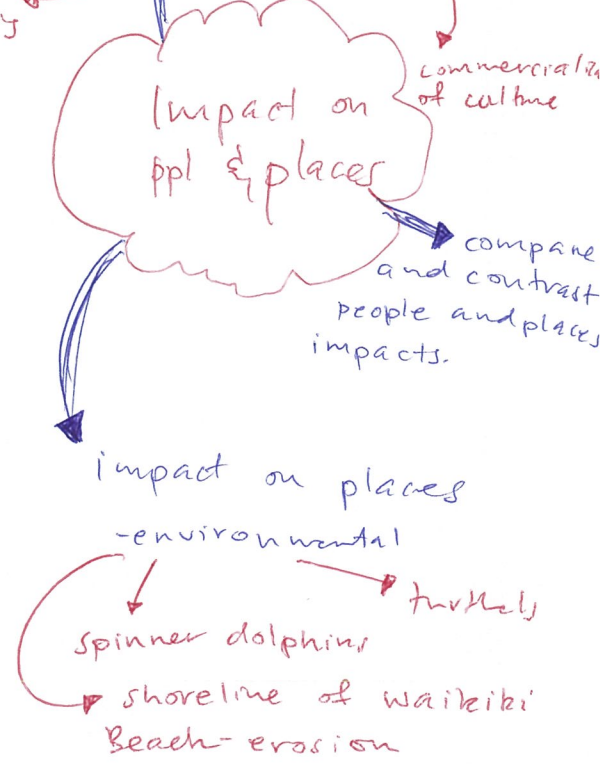 y
commercializa
of culture
Impact on
ppl & places
compare
and contrast
people and places
impacts.
impact on places
-environmental
turtles
spinner dolphins
shoreline of waikiki
Beach-erosion